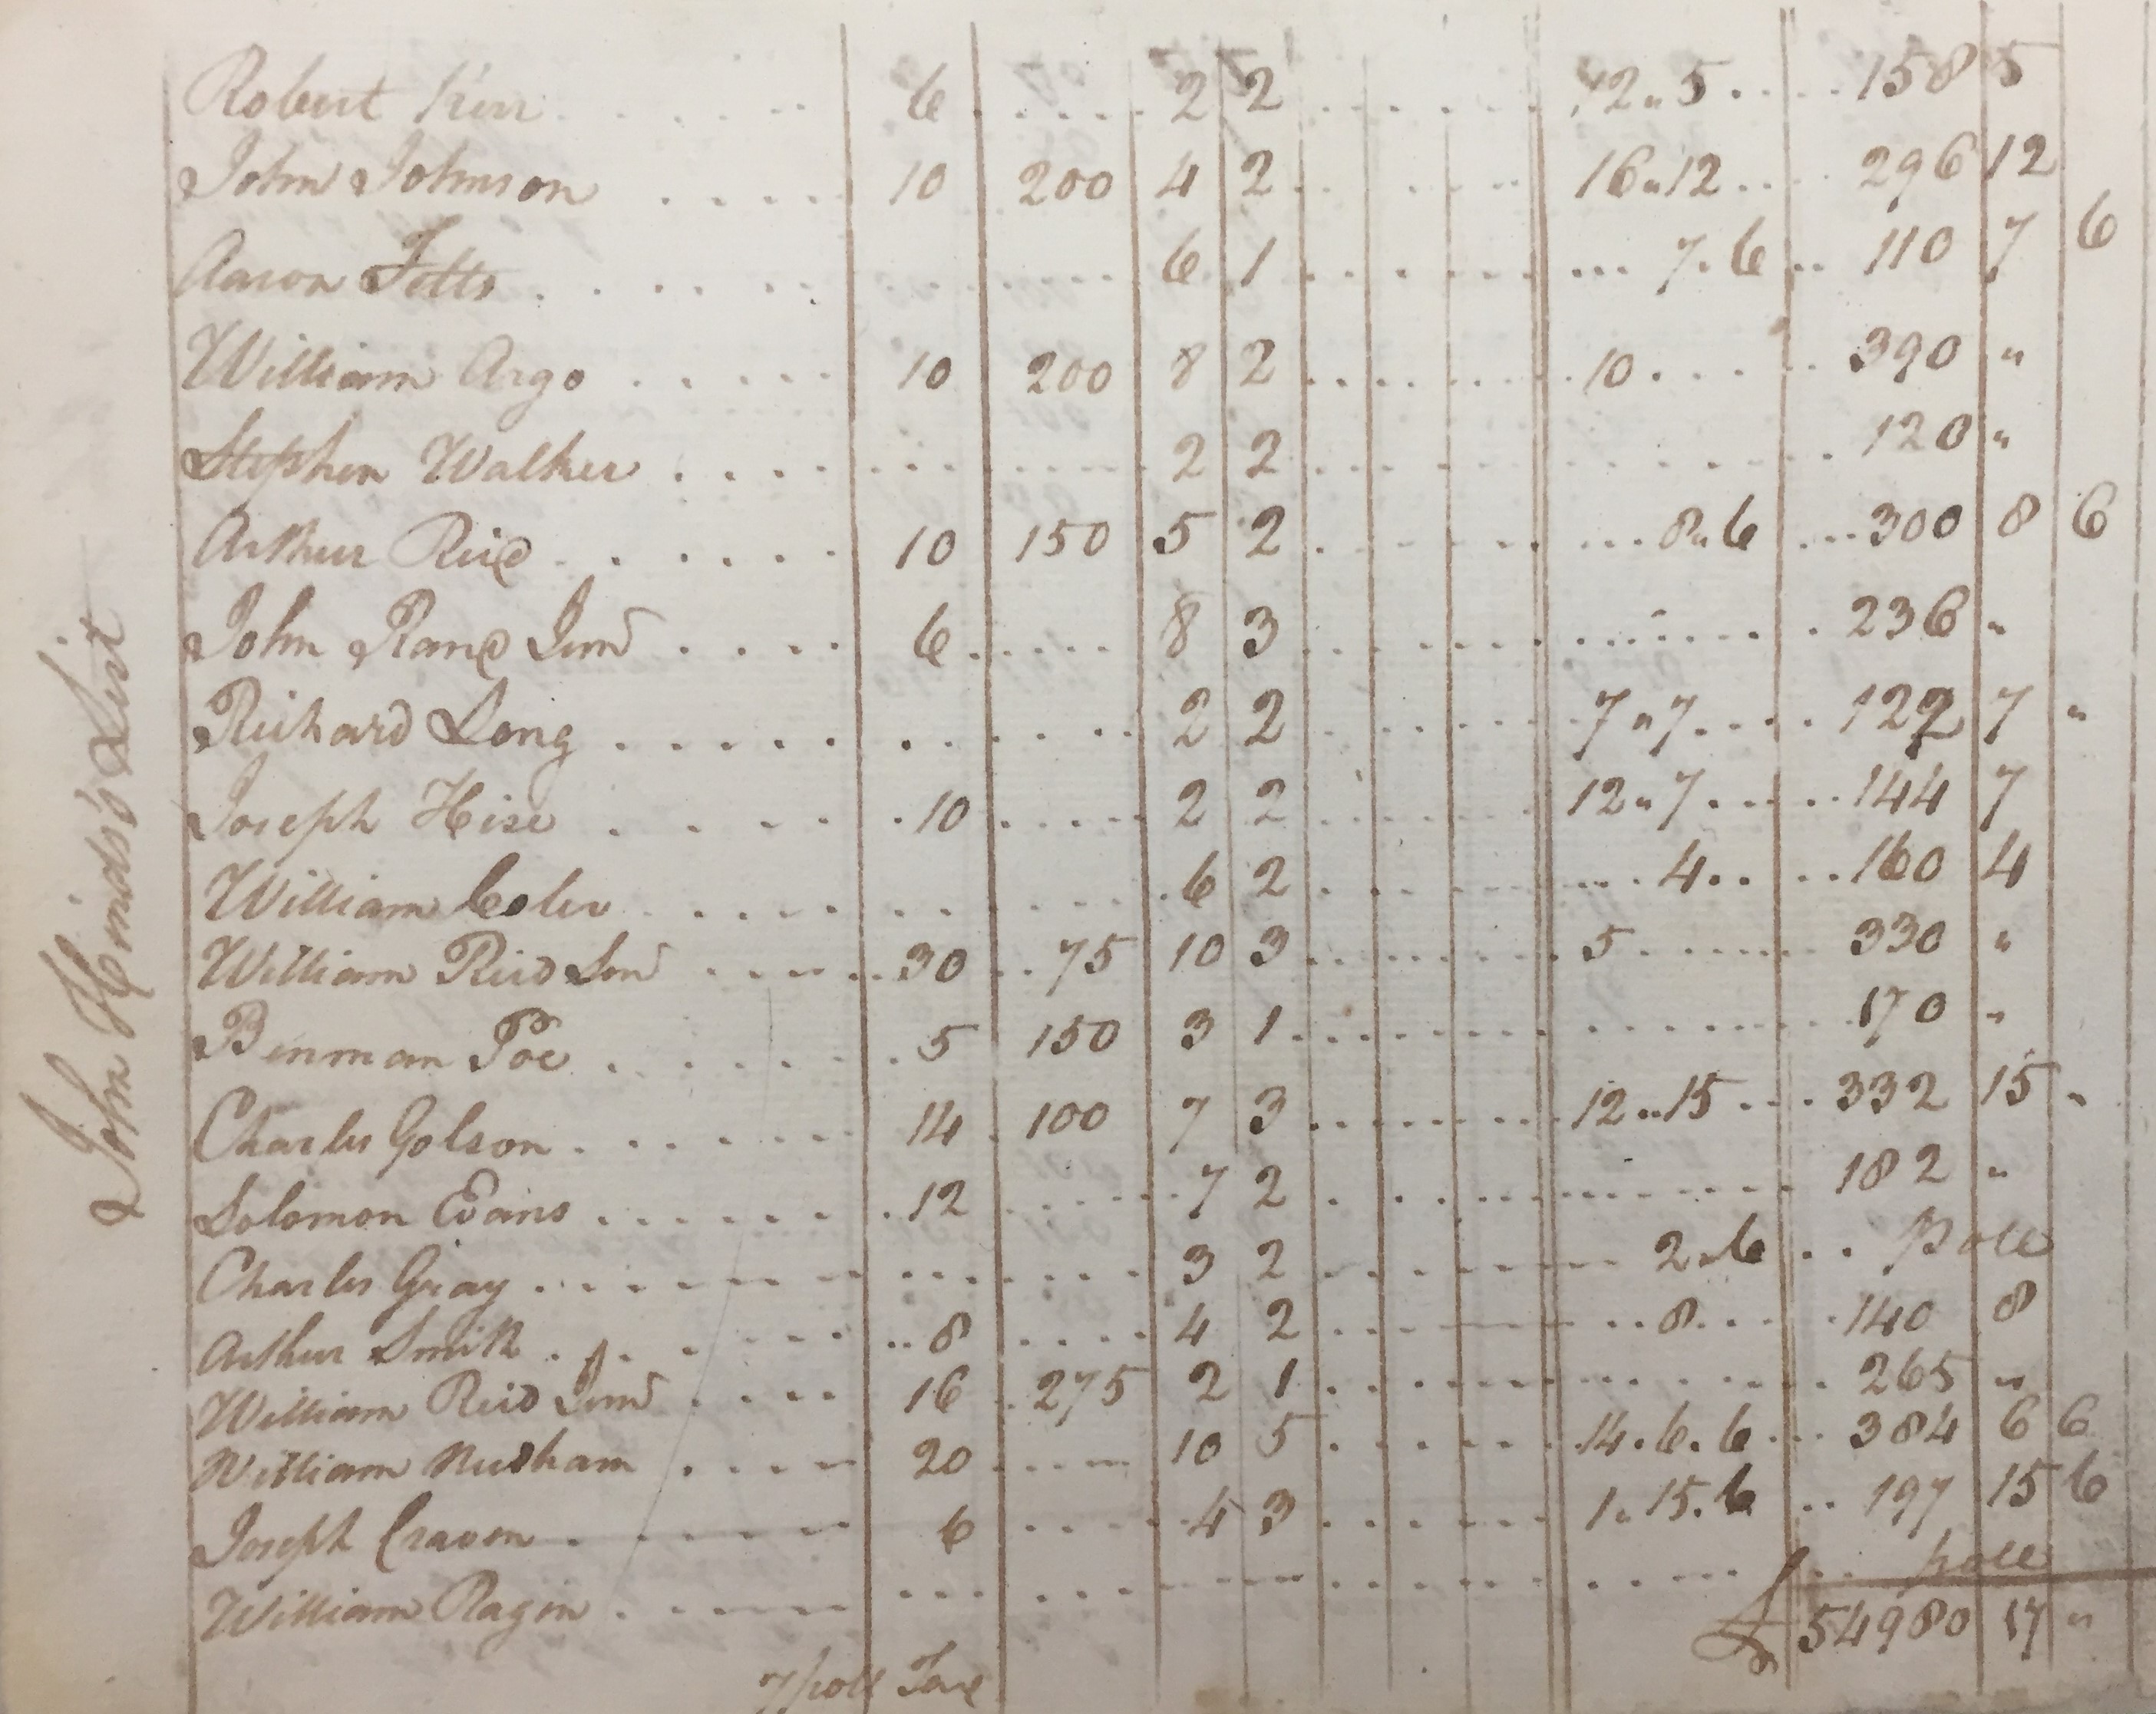 John Hinds's List
Robert Kerr 6 2 2 12 " 5 158 5
John Johnson 10 200 4 2 16 " 12 296 12
Aaron Fotts 6 1 7 . 6 110 7 6
William Argo 10 200 8 2 10 390 "
Stephen Walker 2 2 120 "
Arthur Reid 10 150 5 2 8 " 6 300 8 6
John Rand Junr 6 8 3 236 "
Richard Long 2 2 7 " 7 122 7 "
Joseph Hise 10 2 2 12 " 7 144 7
William Coler 6 2 4 160 4
William Reid Senr 30 75 10 3 5 330 "
Benman Poe 5 150 3 1 170 "
Charles Golson 14 100 7 3 12 " 15 332 15 "
Solomon Evans 12 7 2 182 "
Charles Gray 3 2 2 " 6 Pole
Arthur Smith 8 4 2 8 140 8
William Reid Junr 16 275 2 1 265 "
William Needham 20 10 5 14 . 6 . 6 384 6 6
Joseph Craven 6 4 3 1 " 15 . 6 197 15 6
William Ragin pole
£ 54980 17 "
7 poll Tax